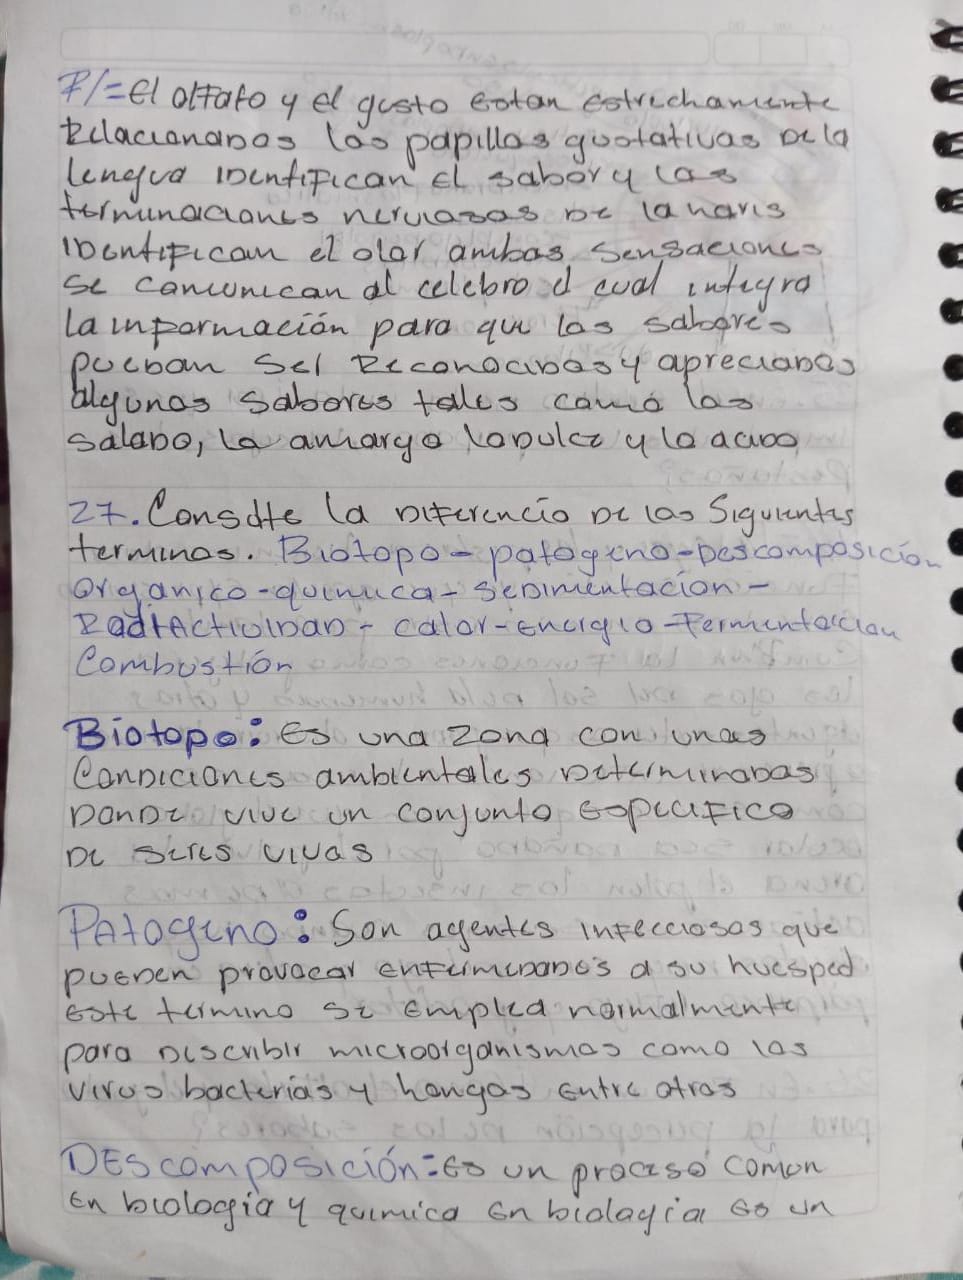 R/= El olfato y el gusto estan estrechamente
relacionados las papilas gustativas de la
lengua identifican el sabor y las
terminaciones nerviosas de la naris
identifican el olor ambas sensaciones
se comunican al celebro el cual integra
la información para que los sabores
puedan sel reconocidos y apreciados
algunos sabores tales como los
salado, lo amargo lo dulce y lo acido
27. Consulte la diferencia de los siguientes
terminos. Biotopo - patogeno - Descomposición
Organico - quimica - sedimentación -
RadiActividad - calor - energia - Fermentación
Combustión
Biotopo: Es una zona con unas
Condiciones ambientales determinadas
Donde vive un conjunto especifico
De seres vivos
PAtogeno: Son agentes infecciosos que
pueden provocar enfermedades a su huesped
este termino se emplea normalmente
para describir microorganismos como los
virus bacterias y hongos entre otros
DEScomposición: Es un proceso comun
En biologia y quimica en biologia es un